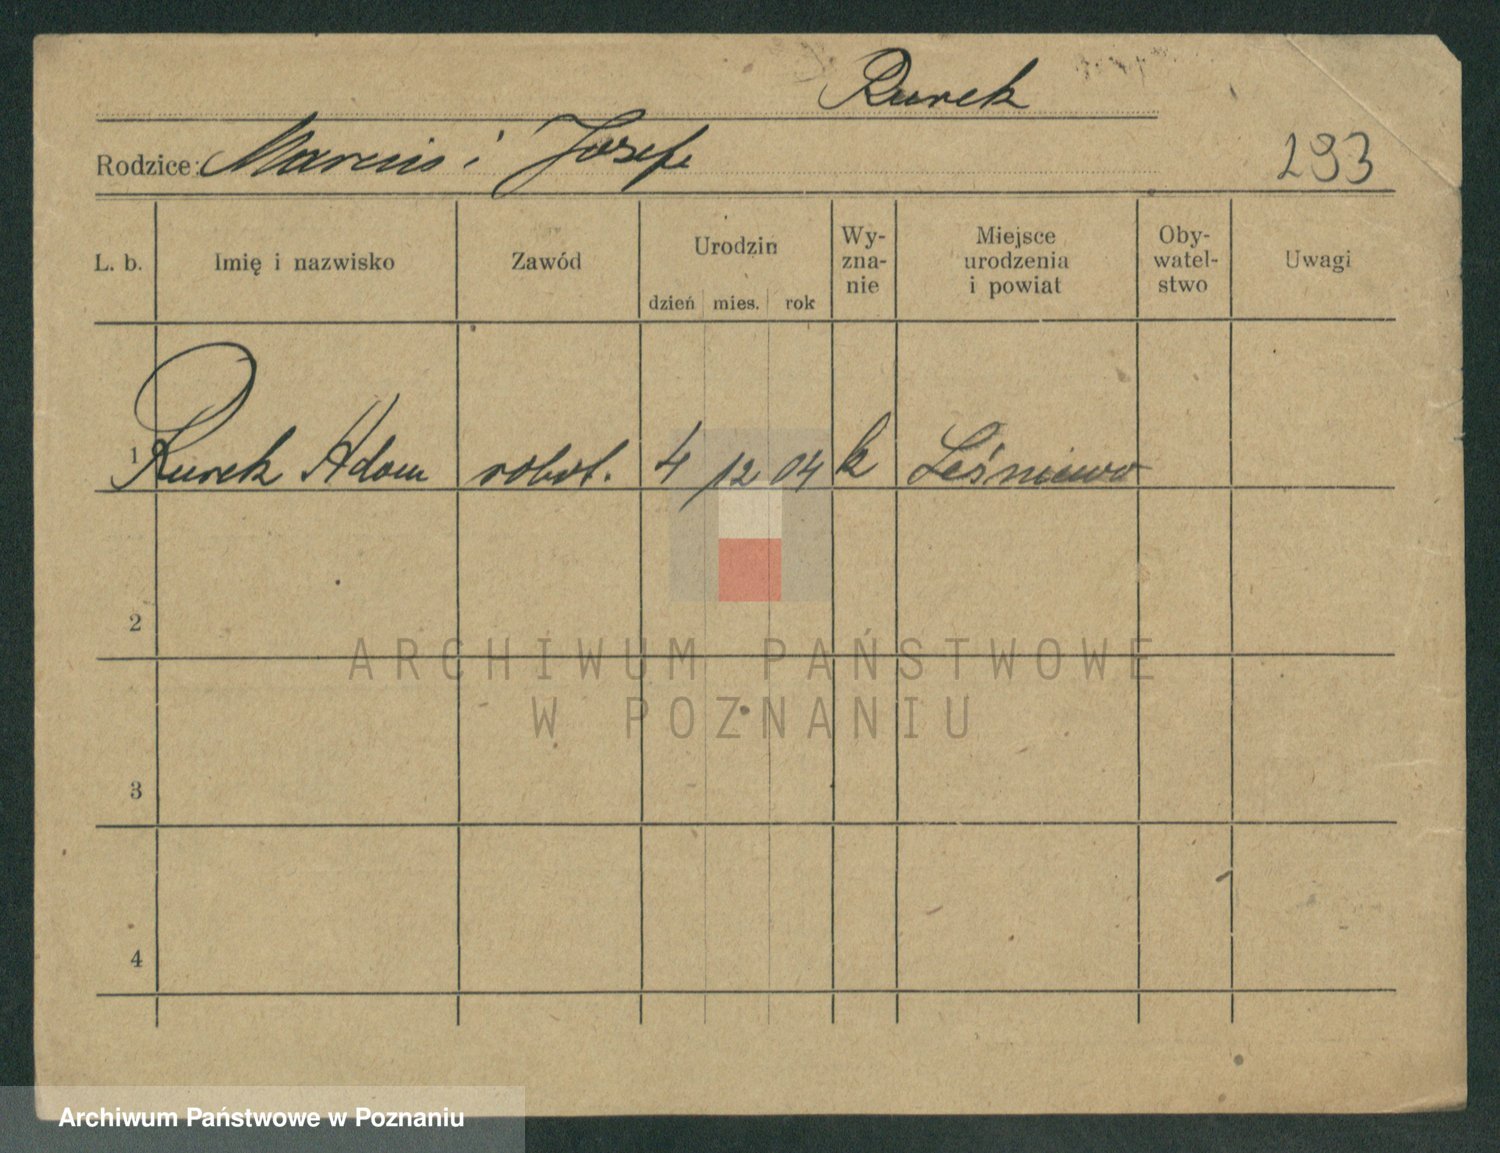 Rurek
Rodzice: Marcin i Józefa
293
L. b. Imię i nazwisko Zawód Urodzin dzień mies. rok Wy-zna-nie Miejsce urodzenia i powiat Oby-watel-stwo Uwagi
1 Rurek Adam robot. 4 12 04 k Leśniewo
2
ARCHIWUM PAŃSTWOWE
W POZNANIU
3
4
Archiwum Państwowe w Poznaniu